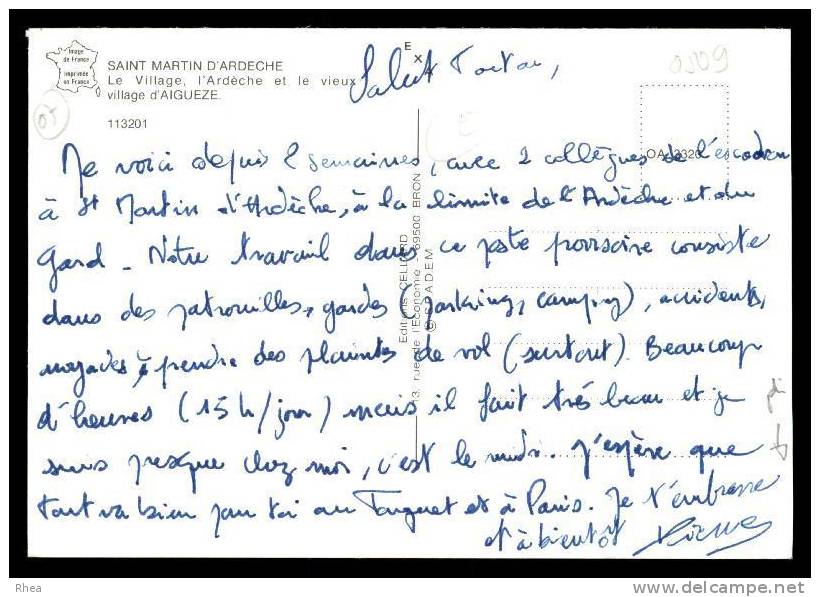 Image
de France
imprimée
en France
SAINT MARTIN D'ARDECHE
Le Village, l'Ardèche et le vieux
village d'AIGUEZE.
113201
07
Ex
0309
OA 3320
Editions CELLARD
13, rue de l'Economie - 69500 BRON
© SPADEM
Salut Tonton,
Me voici depuis 2 semaines, avec 2 collègues de l'escadron
à St Martin d'Ardèche, à la limite de l'Ardèche et du
Gard - Notre travail dans ce poste provisoire consiste
dans des patrouilles, gardes (parking, camping), accidents,
noyades, à prendre des plaintes de vol (surtout). Beaucoup
d'heures (15 h/jour) mais il fait très beau et je
suis presque chez moi, c'est le midi. J'espère que
tout va bien pour toi au Touquet et à Paris. Je t'embrasse
et à bientôt
Rhea
www.delcampe.net